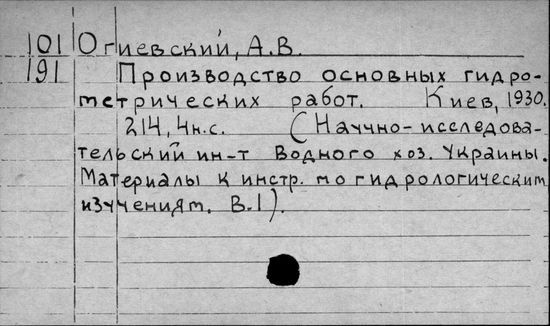 101 Огиевский, А.В.
191 Производство основных гидро-
метрических работ. Киев, 1930.
214, 4н.с. (Научно-исследова-
тельский ин-т Водного хоз. Украины.
Материалы к инстр. по гидрологическим
изучениям. В.1).